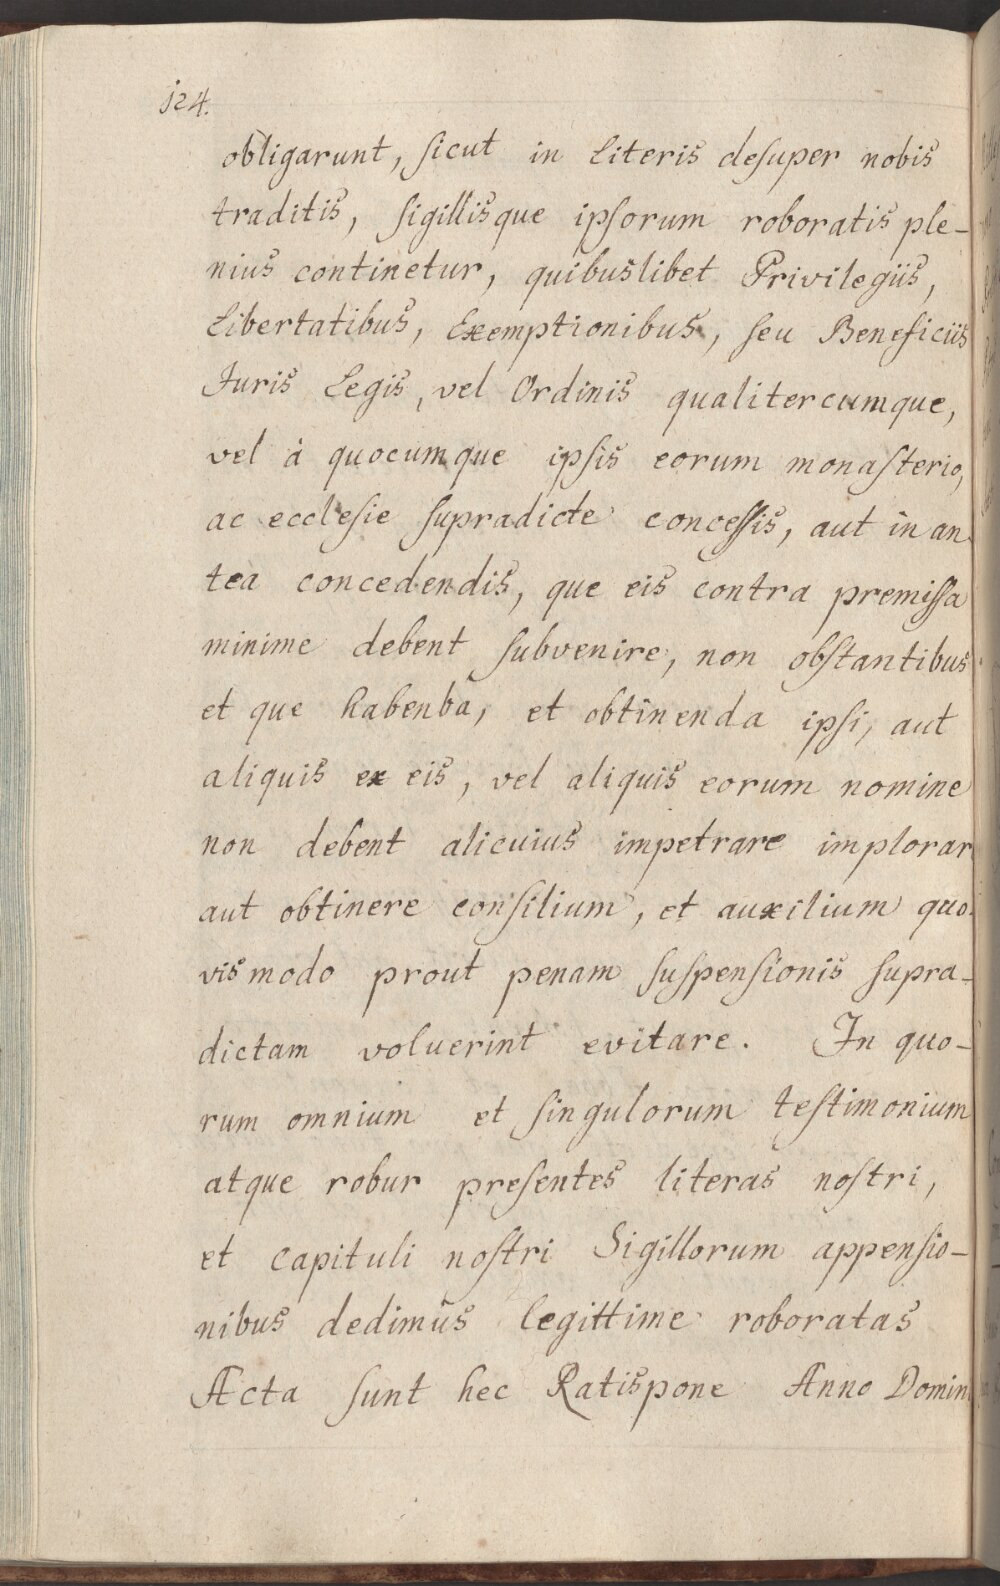 124.
obligarunt, sicut in Literis desuper nobis
traditis, sigillisque ipsorum roboratis ple-
nius continetur, quibuslibet Privilegiis,
Libertatibus, Exemptionibus, seu Beneficiis
Iuris Legis, vel Ordinis qualitercumque,
vel à quocumque ipsis eorum monasterio,
ac ecclesie supradicte concessis, aut in an
tea concedendis, que eis contra premissa
minime debent subvenire, non obstantibus
et que habenba, et obtinenda ipsi, aut
aliquis ex eis, vel aliquis eorum nomine
non debent alicuius impetrare implorar
aut obtinere consilium, et auxilium quo-
vis modo prout penam suspensionis supra-
dictam voluerint evitare. In quo-
rum omnium et singulorum testimonium
atque robur presentes literas nostri,
et capituli nostri Sigillorum appensio-
nibus dedimus legittime roboratas
Acta sunt hec Ratispone Anno Domin